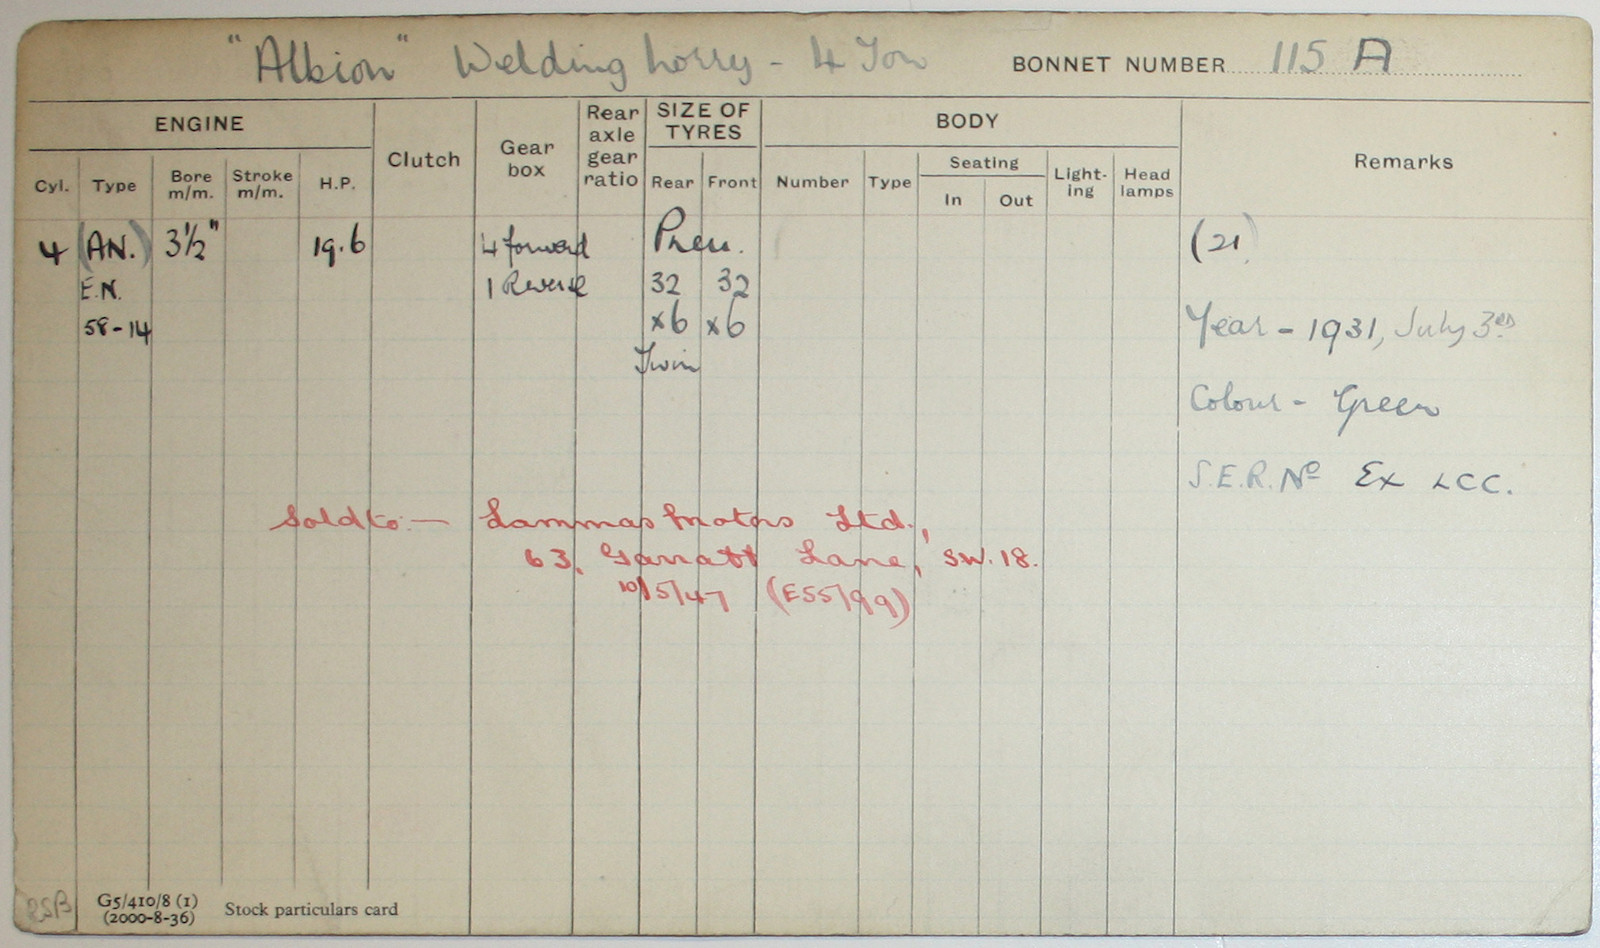 "Albion" Welding Lorry - 4 Ton BONNET NUMBER 115 A
ENGINE Clutch Gear box Rear axle gear ratio SIZE OF TYRES BODY Remarks
Cyl. Type Bore m/m. Stroke m/m. H.P. Rear Front Number Type Seating In Out Light-ing Head lamps
4 (AN.) 3½" 19.6 4 forward Pneu. (21)
E.N. 1 Reverse 32 32
58-14 x6 x6 Year - 1931, July 3rd
Twin
Colour - Green
S.E.R. No Ex LCC.
Sold to:- Lammas Motors Ltd.,
63, Garratt Lane, SW.18.
10/5/47 (ESS/99)
G5/410/8 (1)
(2000-8-36) Stock particulars card